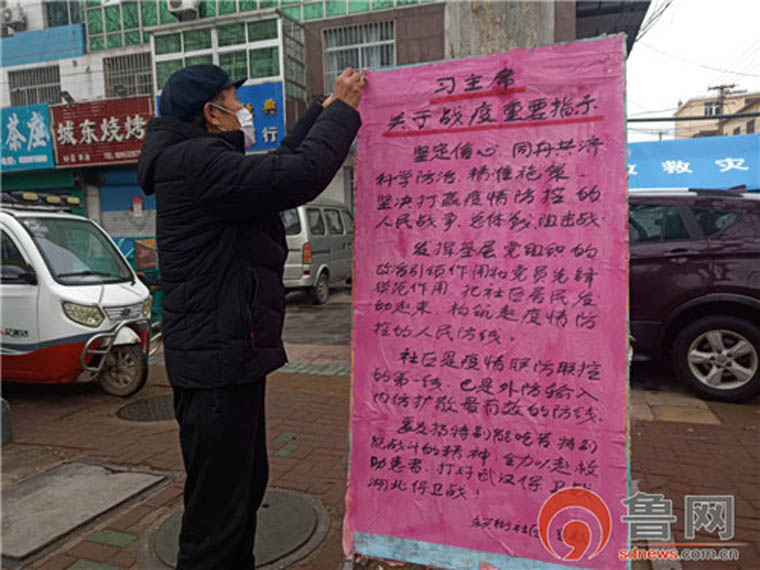 茶座
城东烧烤
行
救灾
习主席
关于战疫重要指示
坚定信心、同舟共济
科学防治、精准施策、
坚决打赢疫情防控的
人民战争、总体战、阻击战.
发挥基层党组织的
政治引领作用和党员先锋
模范作用,把社区居民发
动起来,构筑起疫情防
控的人民防线。
社区是疫情联防联控
的第一线,也是外防输入
内防扩散最有效的防线.
要发扬特别能吃苦、特别
能战斗的精神,全力以赴救
助患者,打好武汉保卫战
湖北保卫战!
社区
鲁网
sdnews.com.cn